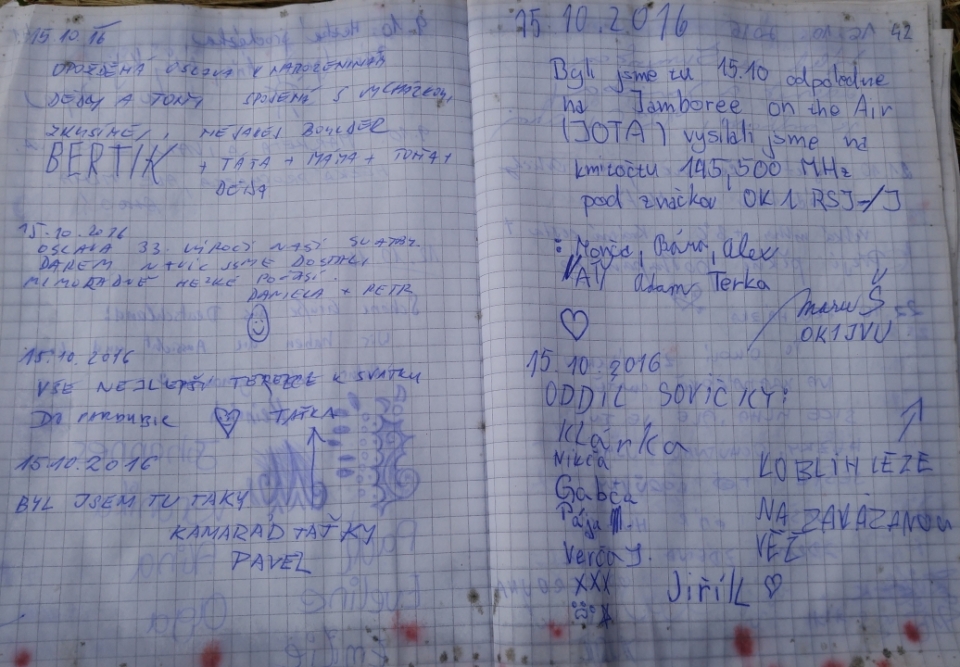 15.10.16
OPOŽDĚNÁ OSLAVA K NAROZENINÁM
DĚDY A TONY SPOJENÁ S VYCHÁZKOU,
ZKUSÍME, NEJSÁDEJ BOULDER
BERTÍK + TÁTA + MÁMA + TOŇA +
DĚDA
15.10.2016
OSLAVA 33. VÝROČÍ NAŠÍ SVATBY.
DAREM NAVÍC JSME DOSTALI
MIMOŘÁDNĚ HEZKÉ POČASÍ.
DANIELA + PETR
15.10.2016
VŠE NEJLEPŠÍ TEREZCE K SVÁTKU
DO PARDUBIC TAŤKA
15.10.2016
BYL JSEM TU TAKY
KAMARÁD TAŤKY
PAVEL
15.10.2016 42
Byli jsme tu 15.10 odpoledne
na Jamboree on the Air
(JOTA) vysílali jsme na
kmitočtu 145,500 MHz
pod značkou OK1RSJ-/J
Bára, Alex
Al Adam Terka
OK1JVU
15.10.2016
ODDÍL SOVIČKY:
Klárka
Nikča
Gabča
Pája M.
Verča J.
XXX
KOBLIH LEZE
NA ZAVÁZANOU
VĚŽ
Jiřík